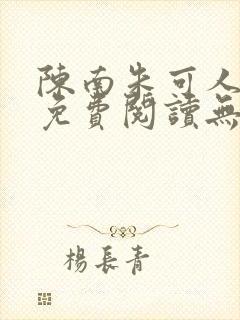 陳南朱可人
免費閱讀無
楊長青